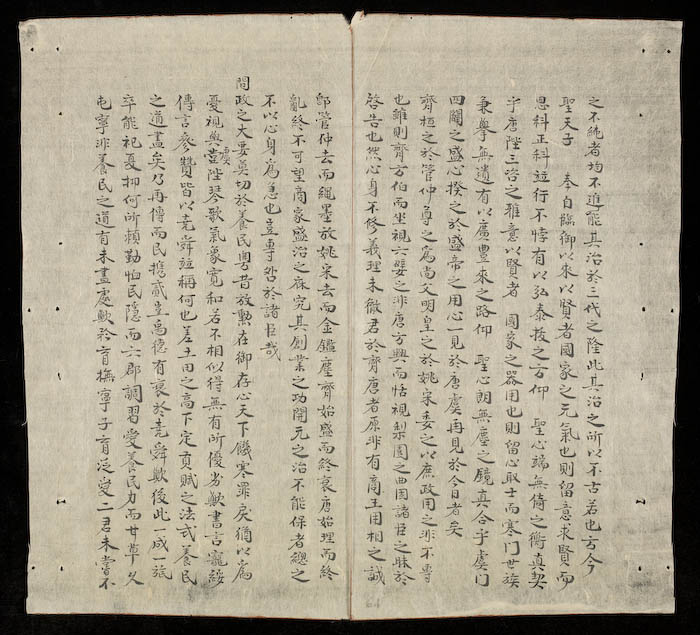 之不純者均不進能其治於三代之隆此其治之所以不古若也方今
聖天子　奉白臨御以來以賢者國家之元氣也則留意求賢而
恩科正科竝行不悖有以弘泰拔之方仰　聖心端無倚之衡真契
乎唐陛三咨之雅意以賢者　國家之器用也則留心取士而寒門世族
秉舉無遺有以廣豊來之路仰　聖心朗無塵之鏡真合乎虞門
四闢之盛心揆之於盛帝之用心一見於唐虞再見於今日者矣
齊桓之於管仲尊之爲尚父明皇之於姚宋委之以庶政用之非不專
也雖則齊方伯而坐視六嬖之非唐方興而恬視梨園之曲固諸臣之昧於
啓告也然心身不修義理未徹君於齊唐者原非有商王用相之誠
故管仲去而繩墨放姚宋去而金鑑塵齊始盛而終衰唐始理而終
亂終不可望商家盛治之庥究其創業之功開元之治不能保者總之
不以心身爲急也豈專咎於諸臣哉
問政之大要莫切於養民粤昔放勳在御存心天下饑寒罪戾猶以爲
憂視與虞陛琴歌氣象寬和若不相似得無有所優劣歟書言寵綏
傳言參贊皆以堯舜竝稱何也差土田之高下定貢賦之法式養民
之道盡矣乃再傳而民携貳豈禹德有衰於堯舜歟後此一成一旅
卒能祀夏抑何所賴勤恤民隱而六郡調習愛養民力而廿草久
屯寧非養民之道有未盡處歟於育撫寧子育泛愛二君未嘗不